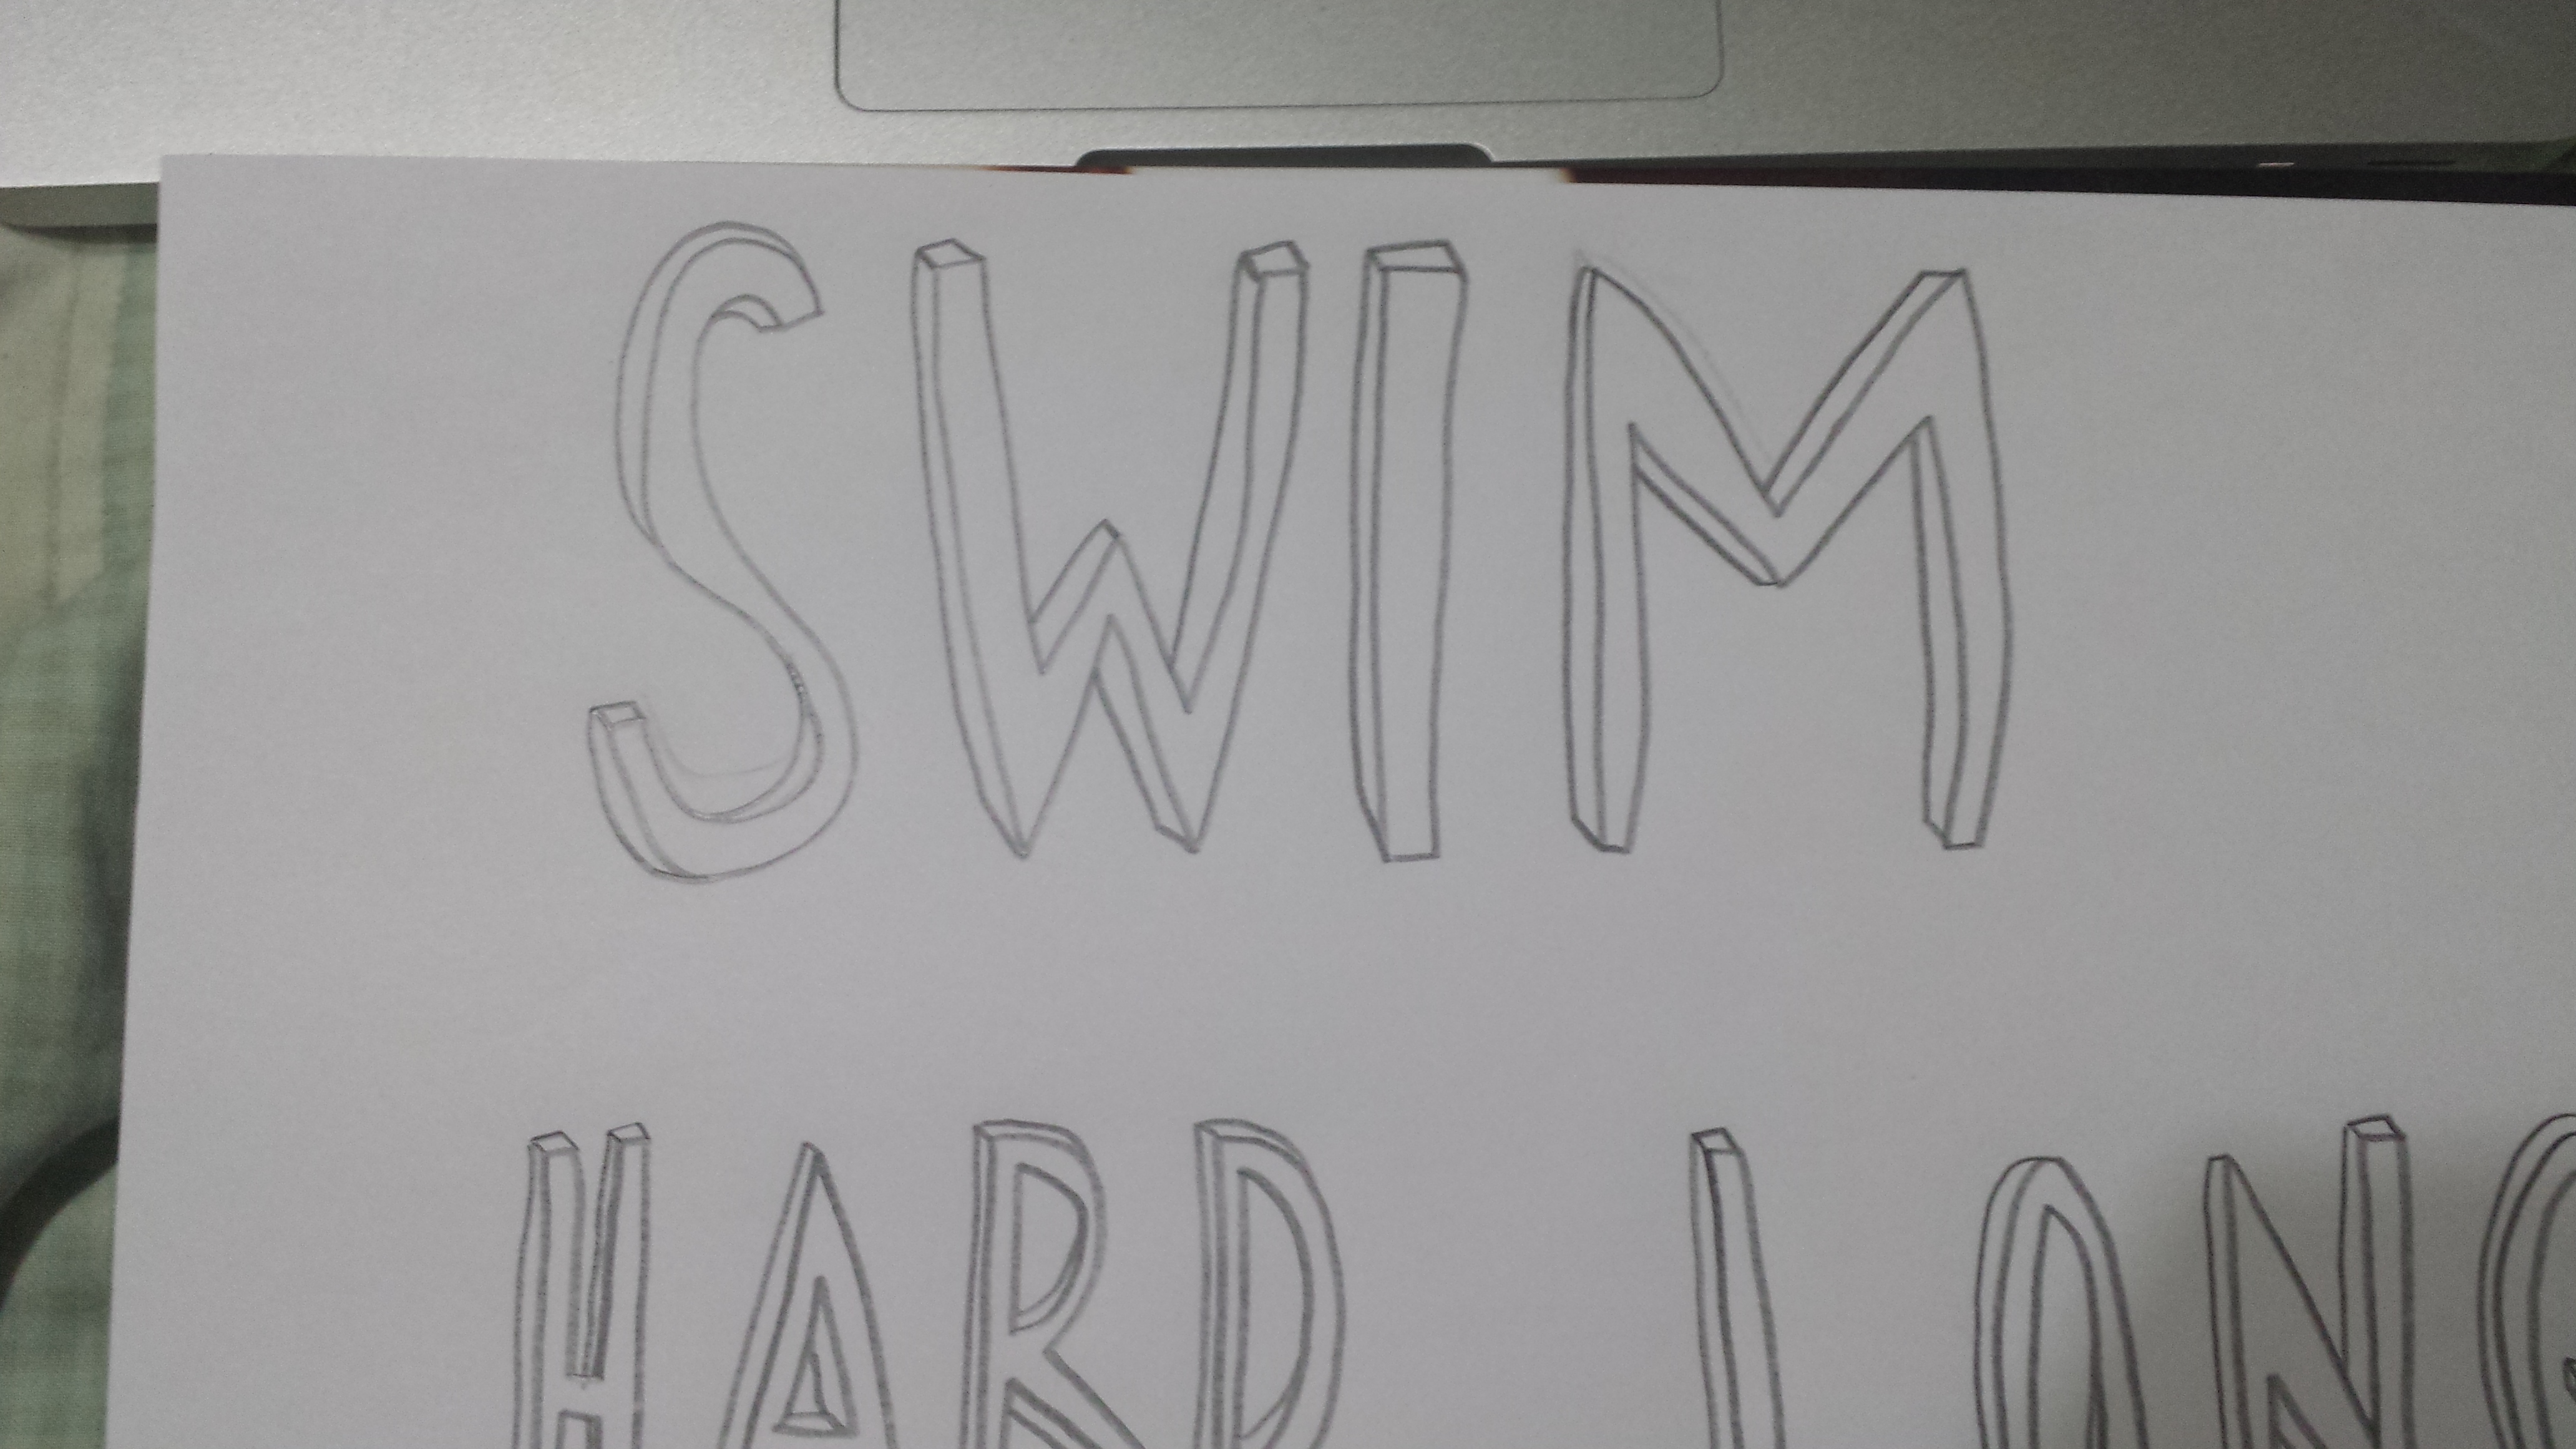 SWIM
HARD LONG